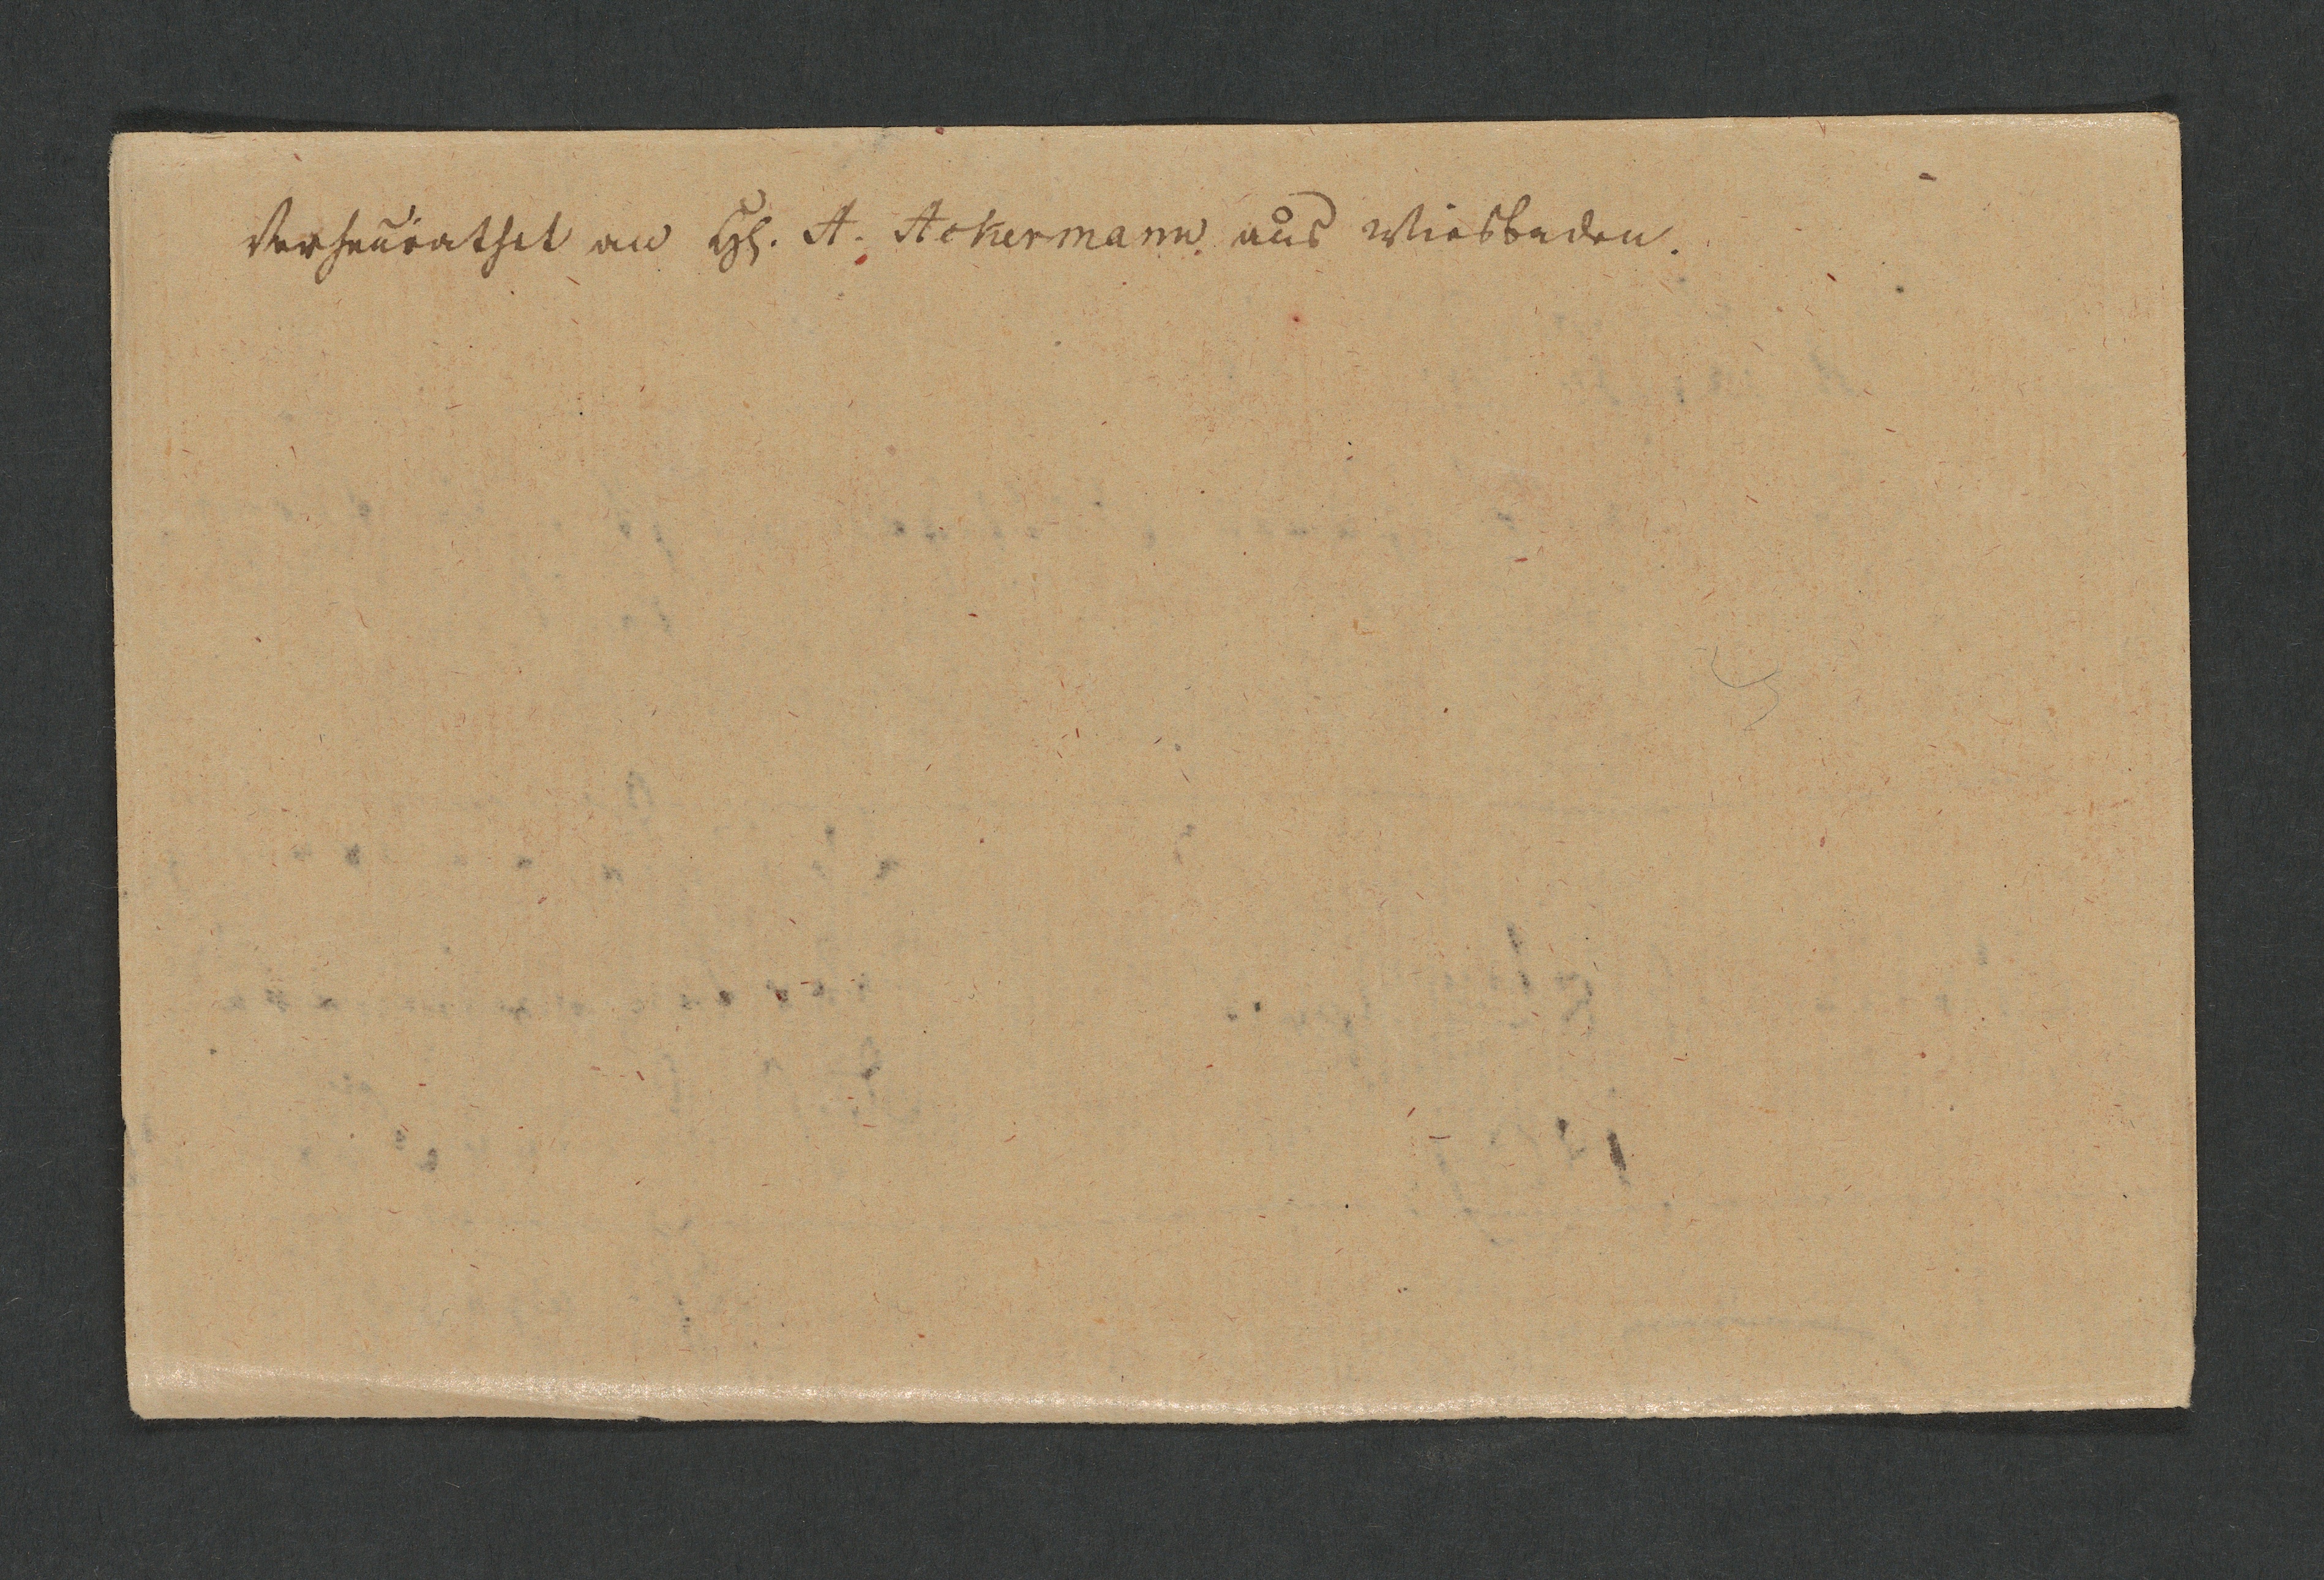 Verheurathet an H. A. Ackermann aus Wiesbaden.